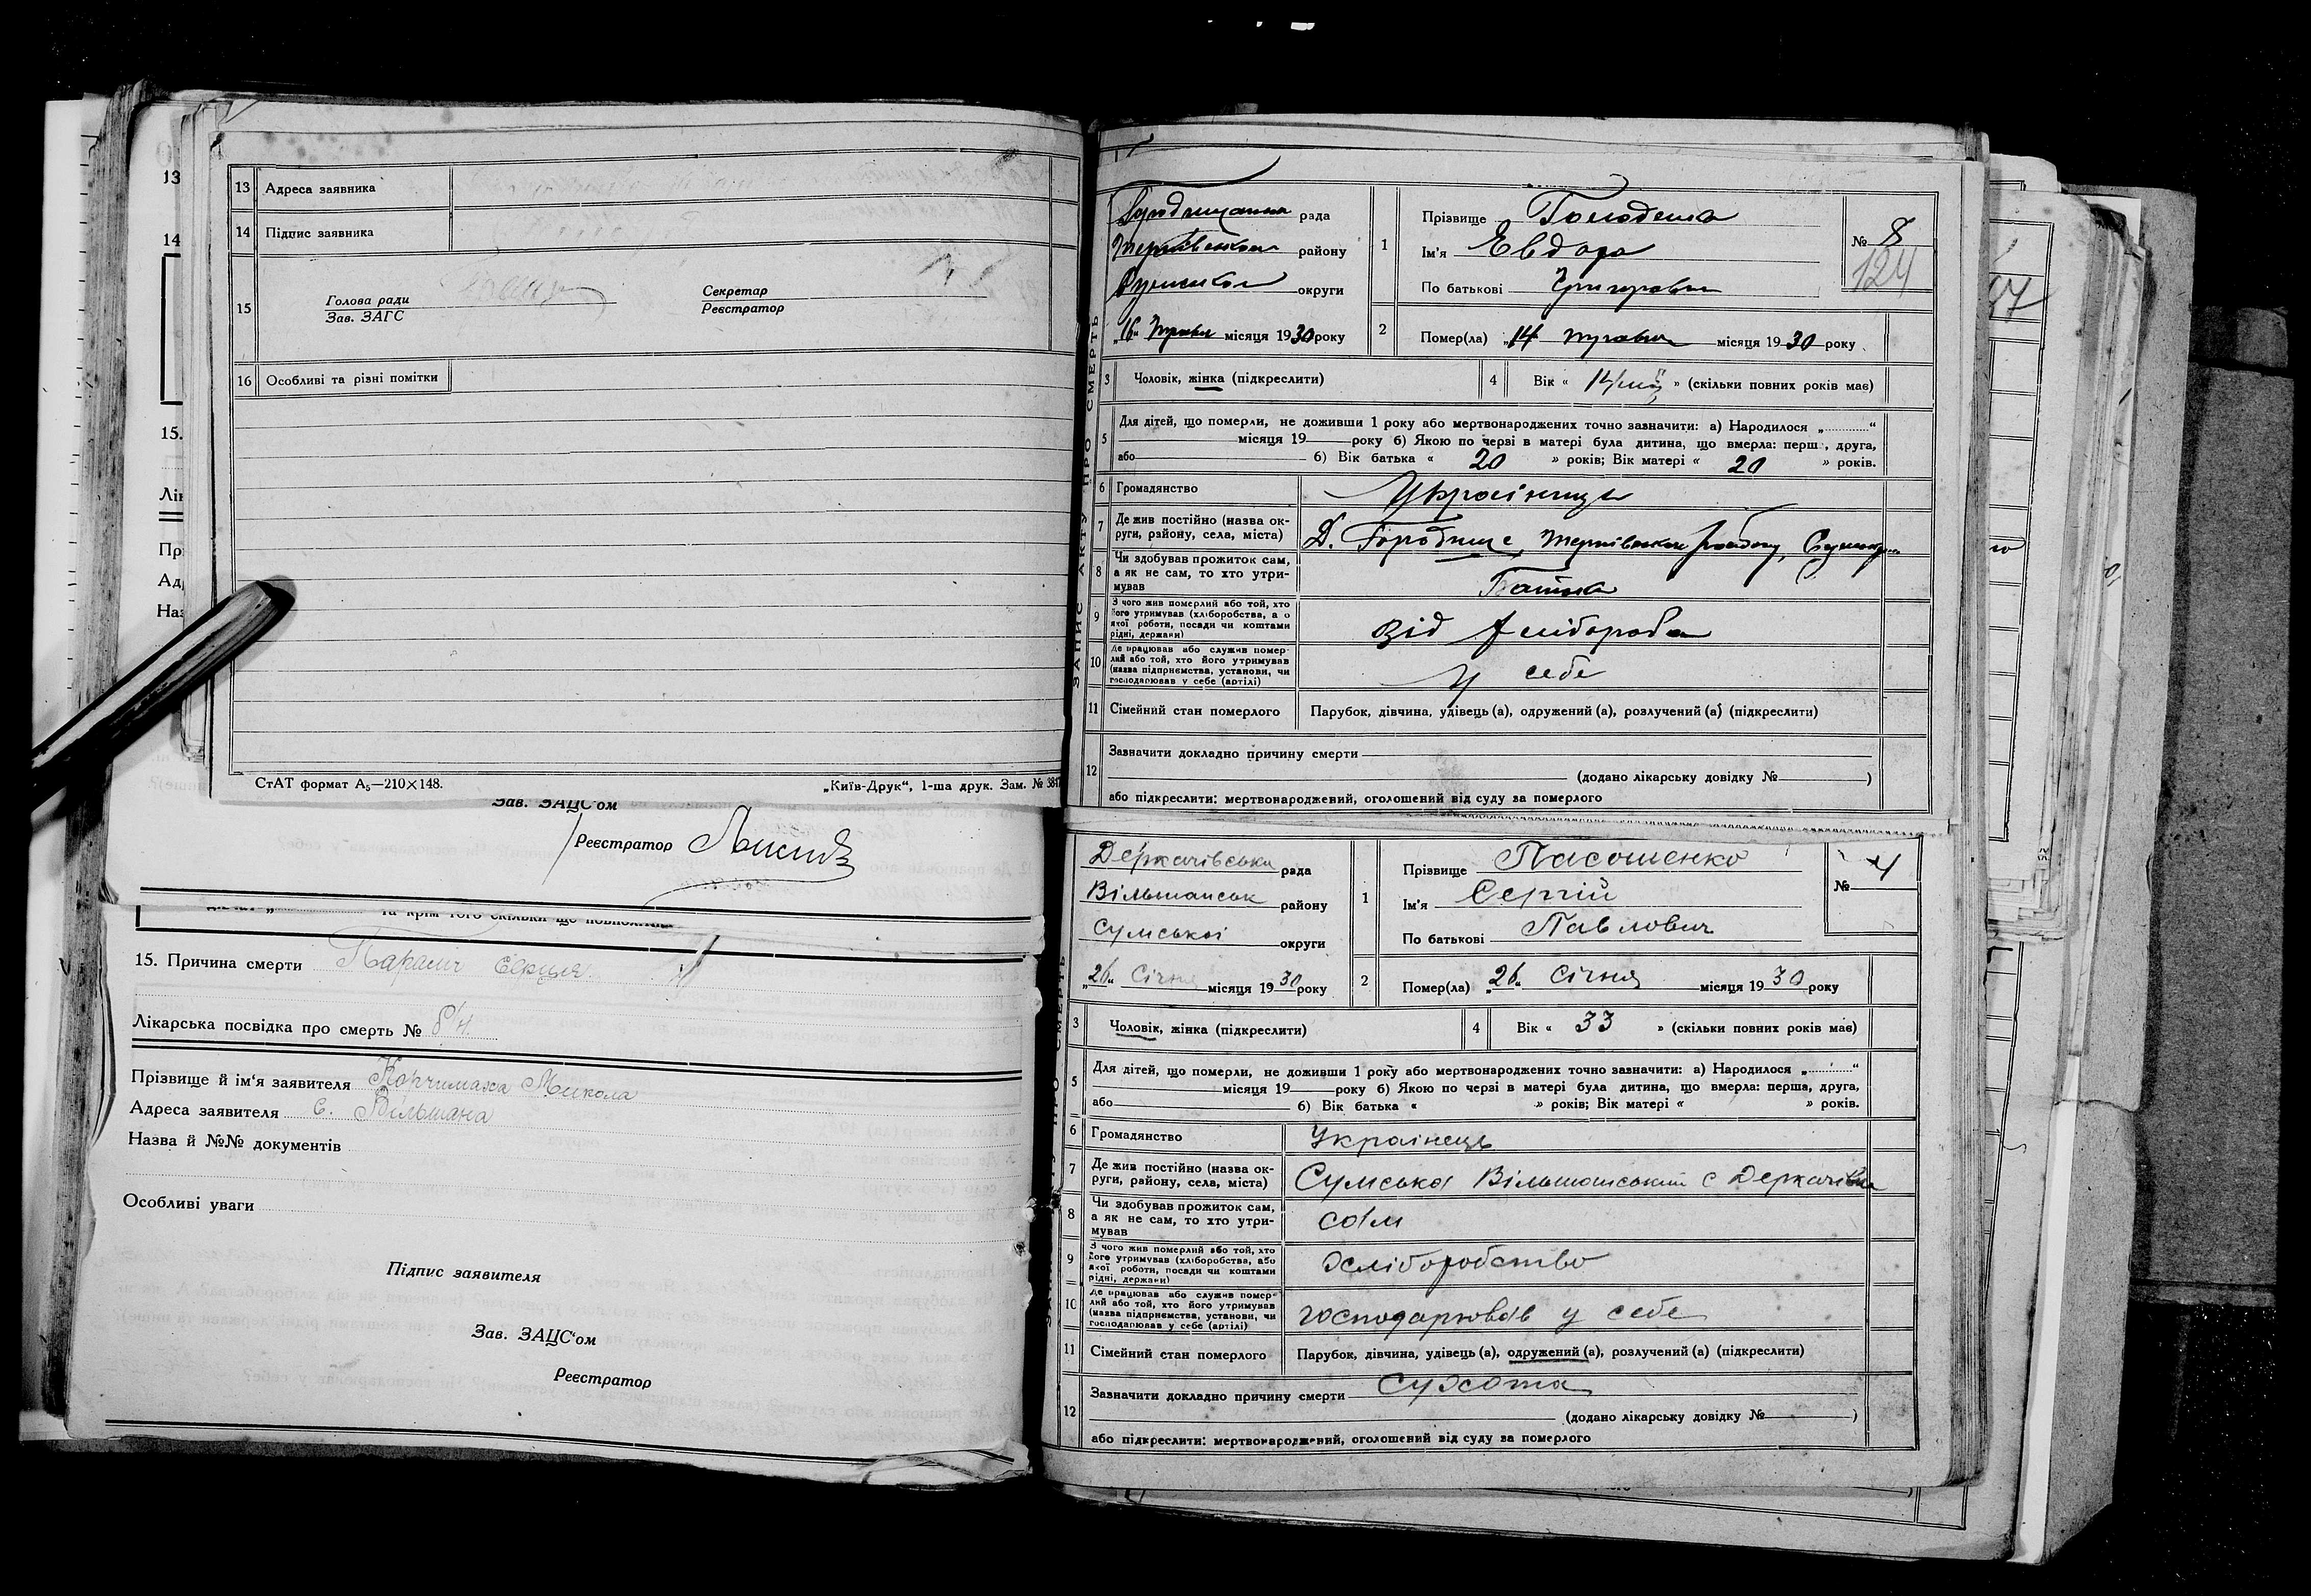 13 Адреса заявника
14 Підпис заявника
15 Голова ради
Зав. ЗАГС
Секретар
Реєстратор
16 Особливі та різні помітки
СтАТ формат А₅—210×148.
„Київ-Друк“, 1-ша друк. Зам. №
Зав. ЗАЦС'ом
Реєстратор
15. Причина смерти Параліч серця
Лікарська посвідка про смерть № б/н.
Прізвище й ім'я заявителя Корчимаха Микола
Адреса заявителя с. Вільшана
Назва й №№ документів
Особливі уваги
Підпис заявителя
Зав. ЗАЦС'ом
Реєстратор
13
14
15.
ЗАПИС АКТУ ПРО СМЕРТЬ
рада
району
округи
„16“ Травня місяця 1930 року
1 Прізвище
Ім'я Евдоха
По батькові
№ 8
124
2 Помер(ла) „14 травня місяця 1930 року
3 Чоловік, жінка (підкреслити)
4 Вік « » (скільки повних років має)
5 Для дітей, що померли, не доживши 1 року або мертвонароджених точно зазначити: а) Народилося „ “
місяця 19 року б) Якою по черзі в матері була дитина, що вмерла: перш , друга,
або б) Вік батька « 20 » років; Вік матері « 20 » років.
6 Громадянство Українця
7 Де жив постійно (назва ок-
руги, району, села, міста) Городище
8 Чи здобував прожиток сам,
а як не сам, то хто утри-
мував Батька
9 З чого жив померлий або той, хто
його утримував (хліборобства, а о
якої роботи, посади чи коштами
рідні, держави) Від
10 Де працював або служив помер-
лий або той, хто його утримував
(назва підприємства, установи, чи
господарював у себе (артілі) у себе
11 Сімейний стан померлого Парубок, дівчина, удівець (а), одружений (а), розлучений (а) (підкреслити)
12 Зазначити докладно причину смерти
(додано лікарську довідку № )
або підкреслити: мертвонароджений, оголошений від суду за померлого
Деркачівська рада
Вільшанськ району
Сумської округи
„26“ Січня місяця 1930 року
1 Прізвище Пасошенко
Ім'я Сергій
По батькові Павлович
№ 4
2 Помер(ла) „26“ Січня місяця 1930 року
3 Чоловік, жінка (підкреслити)
4 Вік « 33 » (скільки повних років має)
5 Для дітей, що померли, не доживши 1 року або мертвонароджених точно зазначити: а) Народилося „ “
місяця 19 року б) Якою по черзі в матері була дитина, що вмерла: перша, друга,
або б) Вік батька « » років; Вік матері « » років.
6 Громадянство Українець
7 Де жив постійно (назва ок-
руги, району, села, міста) Сумська Вільшанський с Деркачівка
8 Чи здобував прожиток сам,
а як не сам, то хто утри-
мував сам
9 З чого жив померлий або той, хто
його утримував (хліборобства, або
якої роботи, посади чи коштами
рідні, держави) хліборобство
10 Де працював або служив помер-
лий або той, хто його утримував
(назва підприємства, установи, чи
господарював у себе (артілі) господарював у себе
11 Сімейний стан померлого Парубок, дівчина, удівець (а), одружений (а), розлучений (а) (підкреслити)
12 Зазначити докладно причину смерти Сухота
(додано лікарську довідку № )
або підкреслити: мертвонароджений, оголошений від суду за померлого